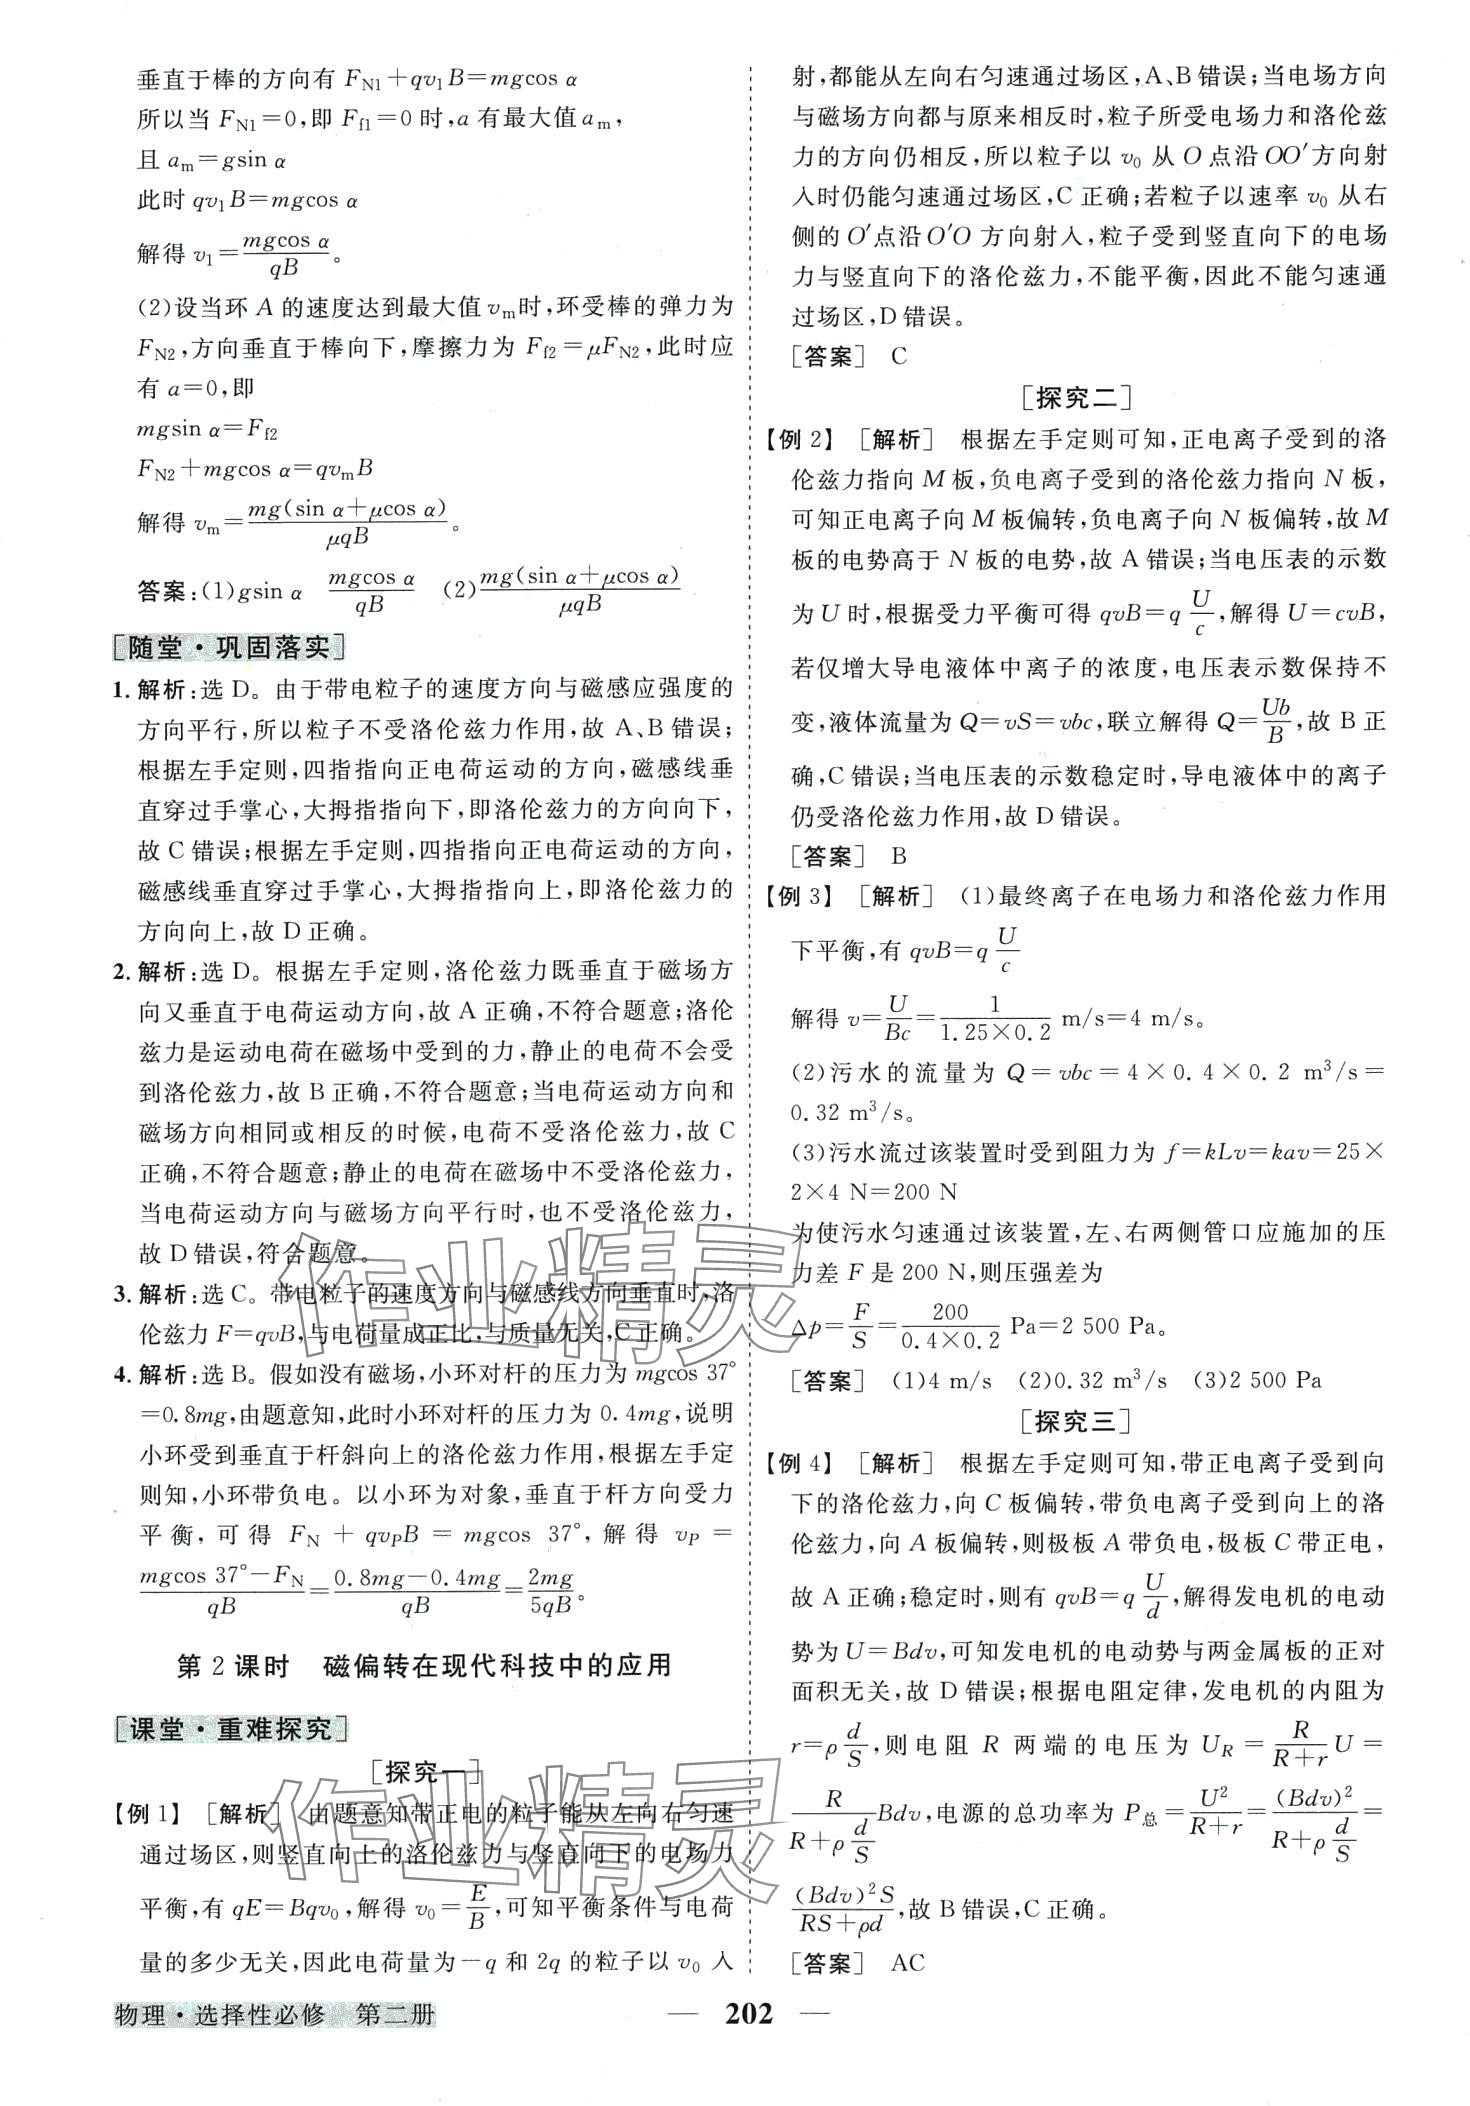 垂直于棒的方向有 F_N1+qv₁B=mgcos α
所以当 F_N1=0,即 F_f1=0 时,a 有最大值 a_m,
且 a_m=gsin α
此时 qv₁B=mgcos α
解得 v₁=mgcos α/qB。
(2)设当环 A 的速度达到最大值 v_m时,环受棒的弹力为
F_N2,方向垂直于棒向下,摩擦力为 F_f2=μF_N2,此时应
有 a=0,即
mgsin α=F_f2
F_N2+mgcos α=qv_mB
解得 v_m=mg(sin α+μcos α)/μqB。
答案:(1)gsin α mgcos α/qB (2)mg(sin α+μcos α)/μqB
[随堂·巩固落实]
1. 解析:选 D。由于带电粒子的速度方向与磁感应强度的
方向平行,所以粒子不受洛伦兹力作用,故 A、B 错误;
根据左手定则,四指指向正电荷运动的方向,磁感线垂
直穿过手掌心,大拇指指向下,即洛伦兹力的方向向下,
故 C 错误;根据左手定则,四指指向正电荷运动的方向,
磁感线垂直穿过手掌心,大拇指指向上,即洛伦兹力的
方向向上,故 D 正确。
2. 解析:选 D。根据左手定则,洛伦兹力既垂直于磁场方
向又垂直于电荷运动方向,故 A 正确,不符合题意;洛伦
兹力是运动电荷在磁场中受到的力,静止的电荷不会受
到洛伦兹力,故 B 正确,不符合题意;当电荷运动方向和
磁场方向相同或相反的时候,电荷不受洛伦兹力,故 C
正确,不符合题意;静止的电荷在磁场中不受洛伦兹力,
当电荷运动方向与磁场方向平行时,也不受洛伦兹力,
故 D 错误,符合题意。
3. 解析:选 C。带电粒子的速度方向与磁感线方向垂直时,洛
伦兹力 F=qvB,与电荷量成正比,与质量无关,C 正确。
4. 解析:选 B。假如没有磁场,小环对杆的压力为 mgcos 37°
=0.8mg,由题意知,此时小环对杆的压力为 0.4mg,说明
小环受到垂直于杆斜向上的洛伦兹力作用,根据左手定
则知,小环带负电。以小环为对象,垂直于杆方向受力
平衡,可得 F_N + qv_PB = mgcos 37°,解得 v_P =
(mgcos 37°-F_N)/qB=(0.8mg-0.4mg)/qB=2mg/5qB。
第 2 课时 磁偏转在现代科技中的应用
[课堂·重难探究]
[探究一]
【例 1】 [解析] 由题意知带正电的粒子能从左向右匀速
通过场区,则竖直向上的洛伦兹力与竖直向下的电场力
平衡,有 qE=Bqv₀,解得 v₀=E/B,可知平衡条件与电荷
量的多少无关,因此电荷量为-q 和 2q 的粒子以 v₀ 入
射,都能从左向右匀速通过场区,A、B 错误;当电场方向
与磁场方向都与原来相反时,粒子所受电场力和洛伦兹
力的方向仍相反,所以粒子以 v₀ 从 O 点沿 OO′方向射
入时仍能匀速通过场区,C 正确;若粒子以速率 v₀ 从右
侧的 O′点沿 O′O 方向射入,粒子受到竖直向下的电场
力与竖直向下的洛伦兹力,不能平衡,因此不能匀速通
过场区,D 错误。
[答案] C
[探究二]
【例 2】 [解析] 根据左手定则可知,正电离子受到的洛
伦兹力指向 M 板,负电离子受到的洛伦兹力指向 N 板,
可知正电离子向 M 板偏转,负电离子向 N 板偏转,故 M
板的电势高于 N 板的电势,故 A 错误;当电压表的示数
为 U 时,根据受力平衡可得 qvB=q U/c,解得 U=cvB,
若仅增大导电液体中离子的浓度,电压表示数保持不
变,液体流量为 Q=vS=vbc,联立解得 Q=Ub/B,故 B 正
确,C 错误;当电压表的示数稳定时,导电液体中的离子
仍受洛伦兹力作用,故 D 错误。
[答案] B
【例 3】 [解析] (1)最终离子在电场力和洛伦兹力作用
下平衡,有 qvB=q U/c
解得 v=U/Bc=1/(1.25×0.2) m/s=4 m/s。
(2)污水的流量为 Q=vbc=4×0.4×0.2 m³/s=
0.32 m³/s。
(3)污水流过该装置时受到阻力为 f=kLv=kav=25×
2×4 N=200 N
为使污水匀速通过该装置,左、右两侧管口应施加的压
力差 F 是 200 N,则压强差为
Δp=F/S=200/(0.4×0.2) Pa=2 500 Pa。
[答案] (1)4 m/s (2)0.32 m³/s (3)2 500 Pa
[探究三]
【例 4】 [解析] 根据左手定则可知,带正电离子受到向
下的洛伦兹力,向 C 板偏转,带负电离子受到向上的洛
伦兹力,向 A 板偏转,则极板 A 带负电,极板 C 带正电,
故 A 正确;稳定时,则有 qvB=q U/d,解得发电机的电动
势为 U=Bdv,可知发电机的电动势与两金属板的正对
面积无关,故 D 错误;根据电阻定律,发电机的内阻为
r=ρ d/S,则电阻 R 两端的电压为 U_R=R/(R+r) U=
R/(R+ρ d/S) Bdv,电源的总功率为 P_总=U²/(R+r)=(Bdv)²/(R+ρ d/S)=
(Bdv)²S/(RS+ρd),故 B 错误,C 正确。
[答案] AC
作业精灵
作业精灵
物理·选择性必修 第二册
— 202 —